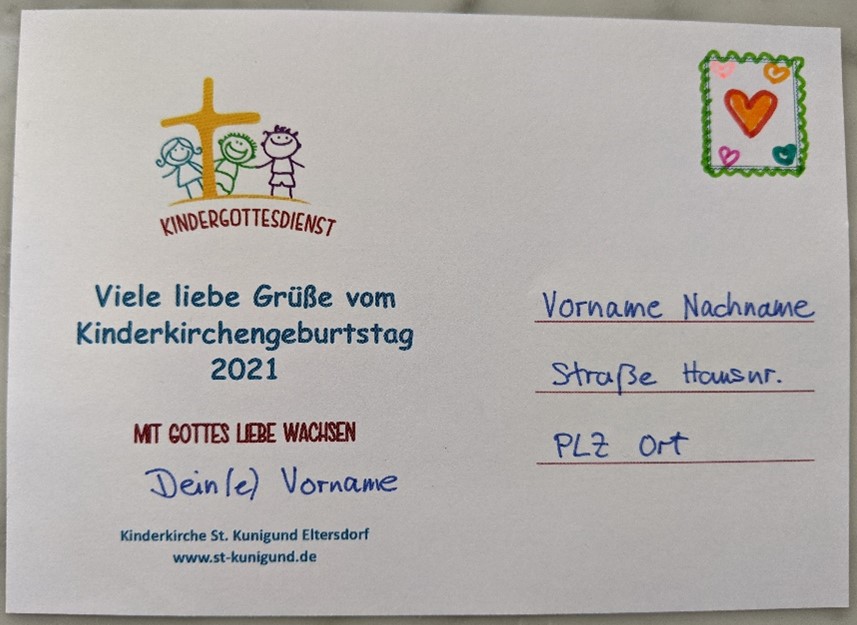 KINDERGOTTESDIENST
Viele liebe Grüße vom
Kinderkirchengeburtstag
2021
MIT GOTTES LIEBE WACHSEN
Dein(e) Vorname
Kinderkirche St. Kunigund Eltersdorf
www.st-kunigund.de
Vorname Nachname
Straße Hausnr.
PLZ Ort